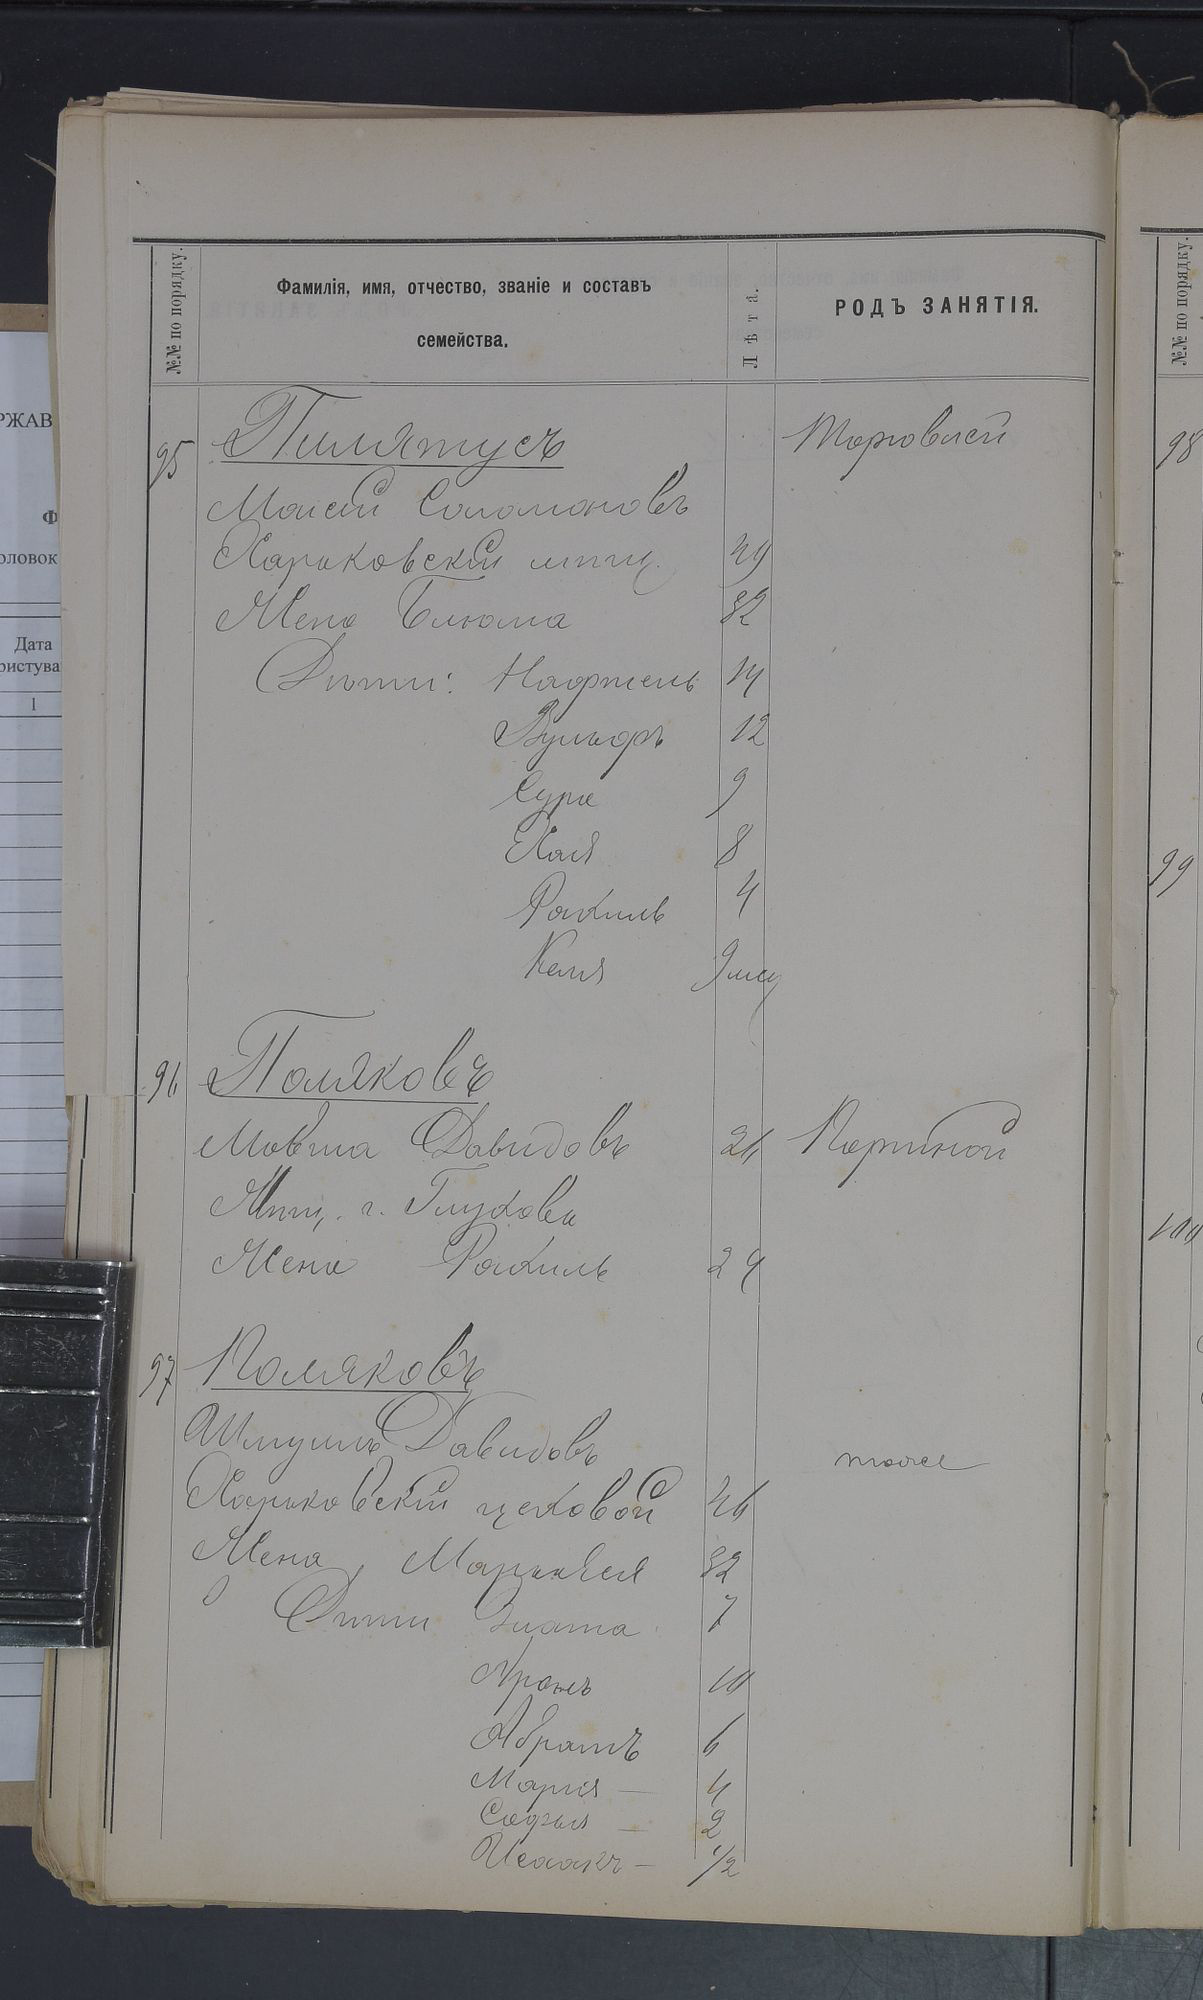 №№ по порядку.
Фамилія, имя, отчество, званіе и составъ
семейства.
Лѣта.
РОДЪ ЗАНЯТІЯ.
№№ по порядку.
РЖАВ
Ф
оловок
Дата
ристува
1
95 Пилятусъ Торговлей
Моисей Соломоновъ
Харьковскій мѣщ. 49
Жена Блюма 32
Дѣти: Нафтель 14
Вульфъ 12
Сура 9
Хая 8
Рахиль 4
Келя 9 мѣс
96 Поляковъ
Мовша Давидовъ 26 Портной
Мѣщ. г. Глухова
Жена Рахиль 24
97 Поляковъ
Шмуль Давидовъ тоже
Харьковскій цеховой 46
Жена, 32
Дѣти Злата 7
Аронъ 10
Абрамъ 6
Марія — 4
Софья — 2
Исаакъ — 1/2
98
99
100